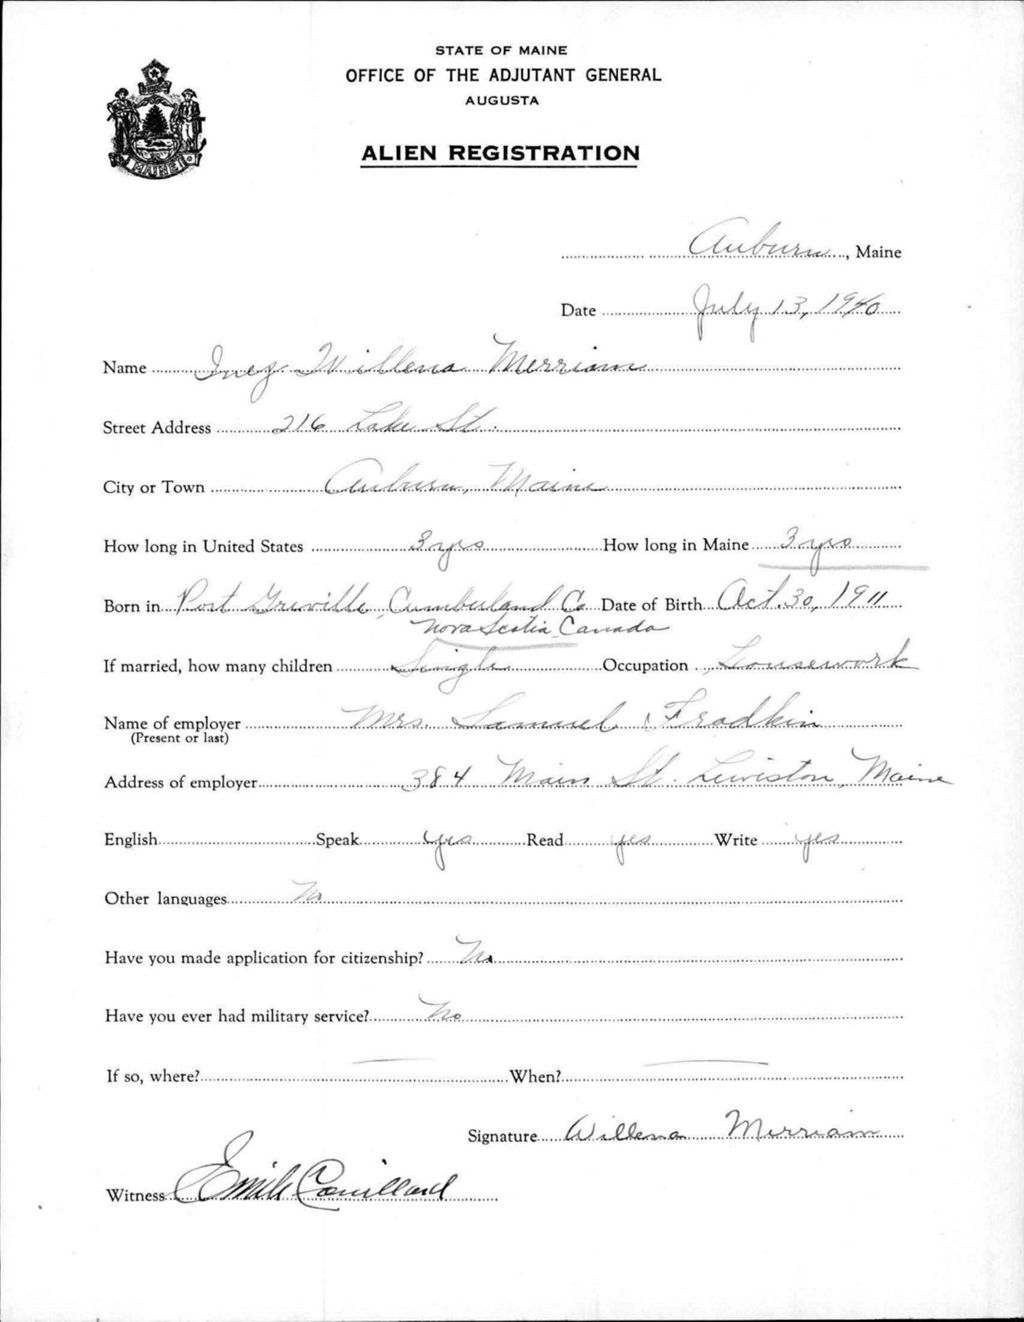 STATE OF MAINE
OFFICE OF THE ADJUTANT GENERAL
AUGUSTA
ALIEN REGISTRATION
MAINE
Auburn, Maine
Date July 13, 1940
Name Inez Willena Merriam
Street Address 216 Lake St.
City or Town Auburn, Maine
How long in United States 3 yrs How long in Maine 3 yrs
Born in Port Greville, Cumberland Co Date of Birth Oct. 30, 1911
Nova Scotia Canada
If married, how many children Single Occupation Housework
Name of employer Mrs. Samuel Fradkin
(Present or last)
Address of employer 384 Main St. Lewiston, Maine
English Speak yes Read yes Write yes
Other languages No
Have you made application for citizenship? No
Have you ever had military service? No
If so, where? When?
Signature Willena Merriam
Witness Emile Couillard